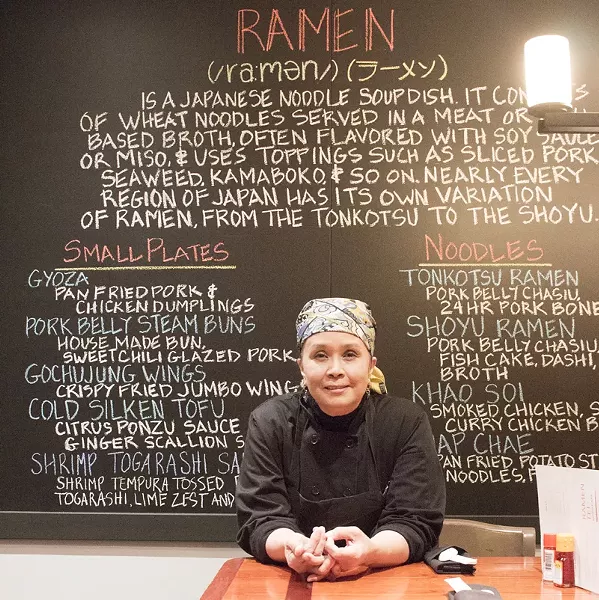 RAMEN
(/ˈrɑːmən/) (ラーメン)
IS A JAPANESE NOODLE SOUP DISH. IT
OF WHEAT NOODLES SERVED IN A MEAT OR
BASED BROTH, OFTEN FLAVORED WITH SOY SAUCE
OR MISO, & USES TOPPINGS SUCH AS SLICED PORK,
SEAWEED, KAMABOKO, & SO ON. NEARLY EVERY
REGION OF JAPAN HAS ITS OWN VARIATION
OF RAMEN, FROM THE TONKOTSU TO THE SHOYU.
SMALL PLATES
GYOZA
PAN FRIED PORK &
CHICKEN DUMPLINGS
PORK BELLY STEAM BUNS
HOUSE MADE BUN,
SWEET CHILI GLAZED PORK
GOCHUJUNG WINGS
CRISPY FRIED JUMBO WING
COLD SILKEN TOFU
CITRUS PONZU SAUCE
GINGER SCALLION S
SHRIMP TOGARASHI SA
SHRIMP TEMPURA TOSSED
TOGARASHI, LIME ZEST AND
NOODLES
TONKOTSU RAMEN
PORK BELLY CHASIU,
24 HR PORK BONE
SHOYU RAMEN
PORK BELLY CHASIU,
FISH CAKE, DASHI,
BROTH
KHAO SOI
SMOKED CHICKEN, S
CURRY CHICKEN B
AP CHAE
PAN FRIED POTATO ST
NOODLES,
RAMEN